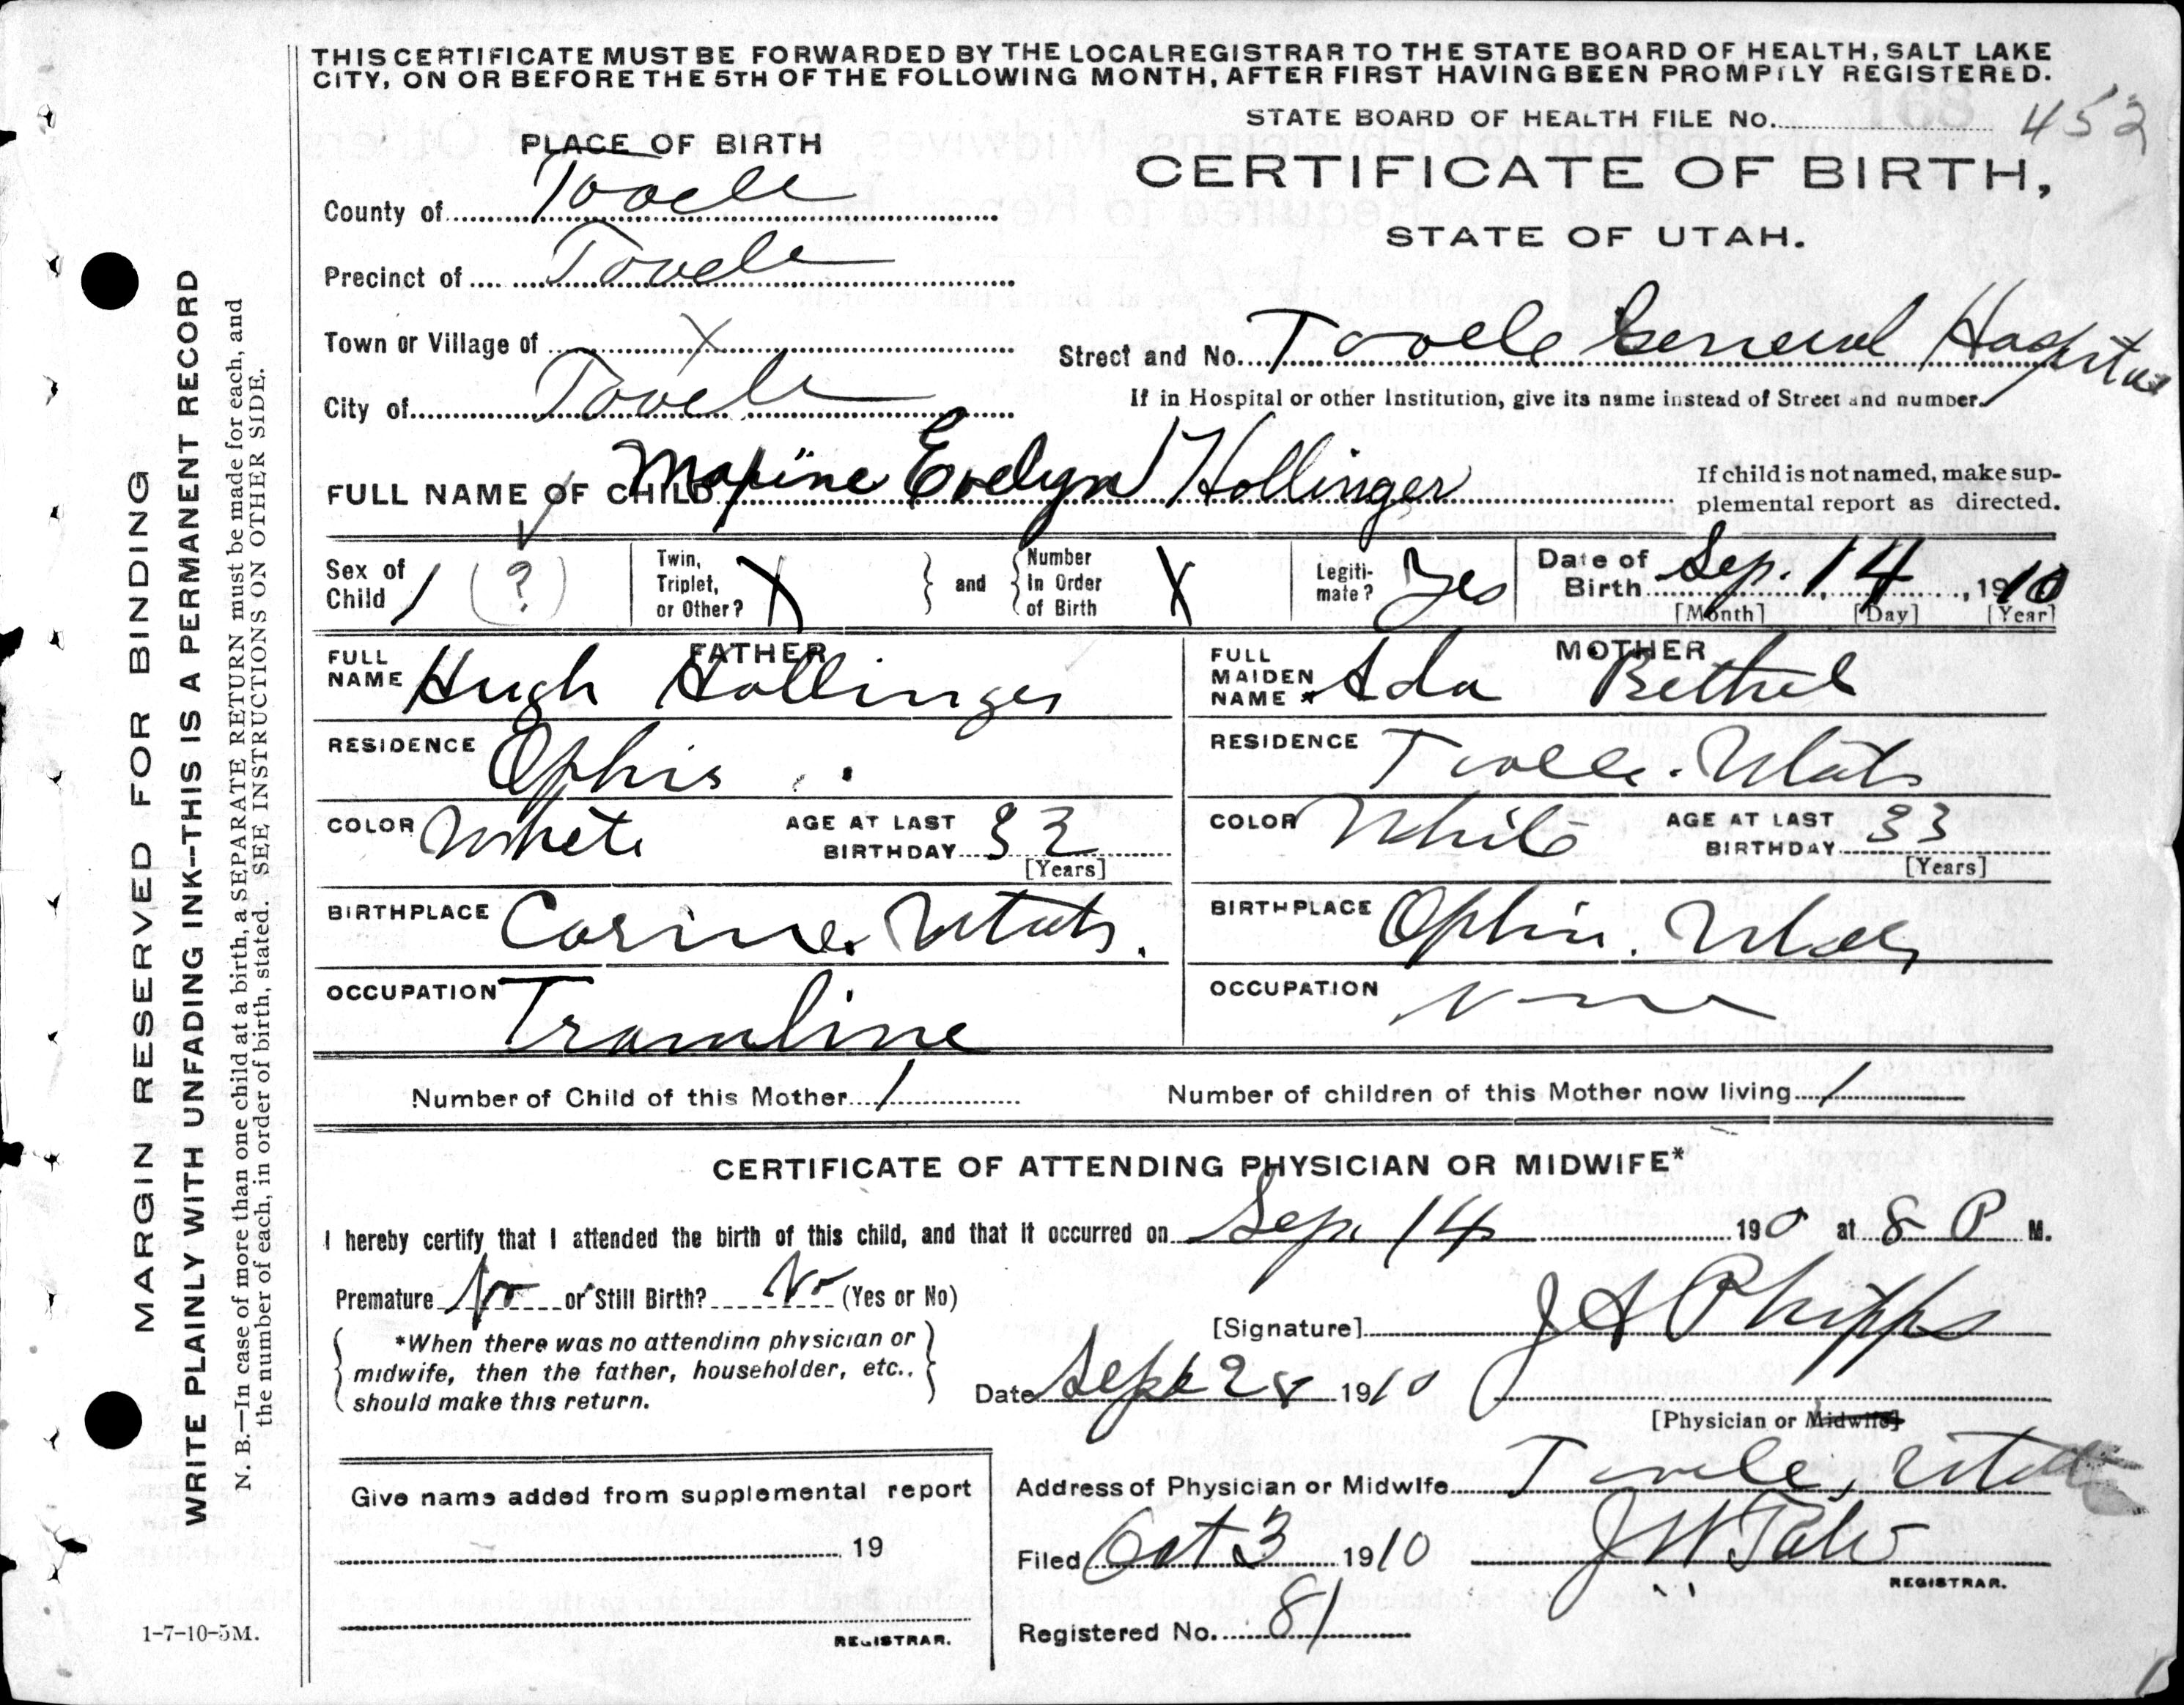 THIS CERTIFICATE MUST BE FORWARDED BY THE LOCAL REGISTRAR TO THE STATE BOARD OF HEALTH, SALT LAKE
CITY, ON OR BEFORE THE 5TH OF THE FOLLOWING MONTH, AFTER FIRST HAVING BEEN PROMPTLY REGISTERED.
STATE BOARD OF HEALTH FILE No. 168 452
CERTIFICATE OF BIRTH,
STATE OF UTAH.
PLACE OF BIRTH
County of Tooele
Precinct of Tooele
Town or Village of X
City of Tooele
Street and No. Tooele General Hospital
If in Hospital or other Institution, give its name instead of Street and number.
FULL NAME OF CHILD Maxine Evelyn Hollinger
If child is not named, make sup-
plemental report as directed.
Sex of Child 1 (?)
Twin, Triplet, or Other? X
and
Number In Order of Birth X
Legiti- mate? Yes
Date of Birth Sep. 14, 1910
[Month] [Day] [Year]
FATHER
FULL NAME Hugh Hollinger
RESIDENCE Ophir
COLOR White
AGE AT LAST BIRTHDAY 32
[Years]
BIRTHPLACE Corine. Utah.
OCCUPATION Tramline
MOTHER
FULL MAIDEN NAME Ada Bethel
RESIDENCE Tooele. Utah
COLOR White
AGE AT LAST BIRTHDAY 33
[Years]
BIRTHPLACE Ophir. Utah
OCCUPATION None
Number of Child of this Mother 1
Number of children of this Mother now living 1
CERTIFICATE OF ATTENDING PHYSICIAN OR MIDWIFE*
I hereby certify that I attended the birth of this child, and that it occurred on Sep. 14 1910 at 8 P M.
Premature No or Still Birth? No (Yes or No)
*When there was no attending physician or
midwife, then the father, householder, etc.,
should make this return.
[Signature] J A Phipps
Date Sept 28 1910
[Physician or Midwife]
Address of Physician or Midwife Tooele, Utah
Give name added from supplemental report
19
REGISTRAR.
Filed Oct 3 1910
REGISTRAR.
Registered No. 81
1-7-10-5M.
MARGIN RESERVED FOR BINDING
WRITE PLAINLY WITH UNFADING INK--THIS IS A PERMANENT RECORD
N. B.—In case of more than one child at a birth, a SEPARATE RETURN must be made for each, and
the number of each, in order of birth, stated. SEE INSTRUCTIONS ON OTHER SIDE.